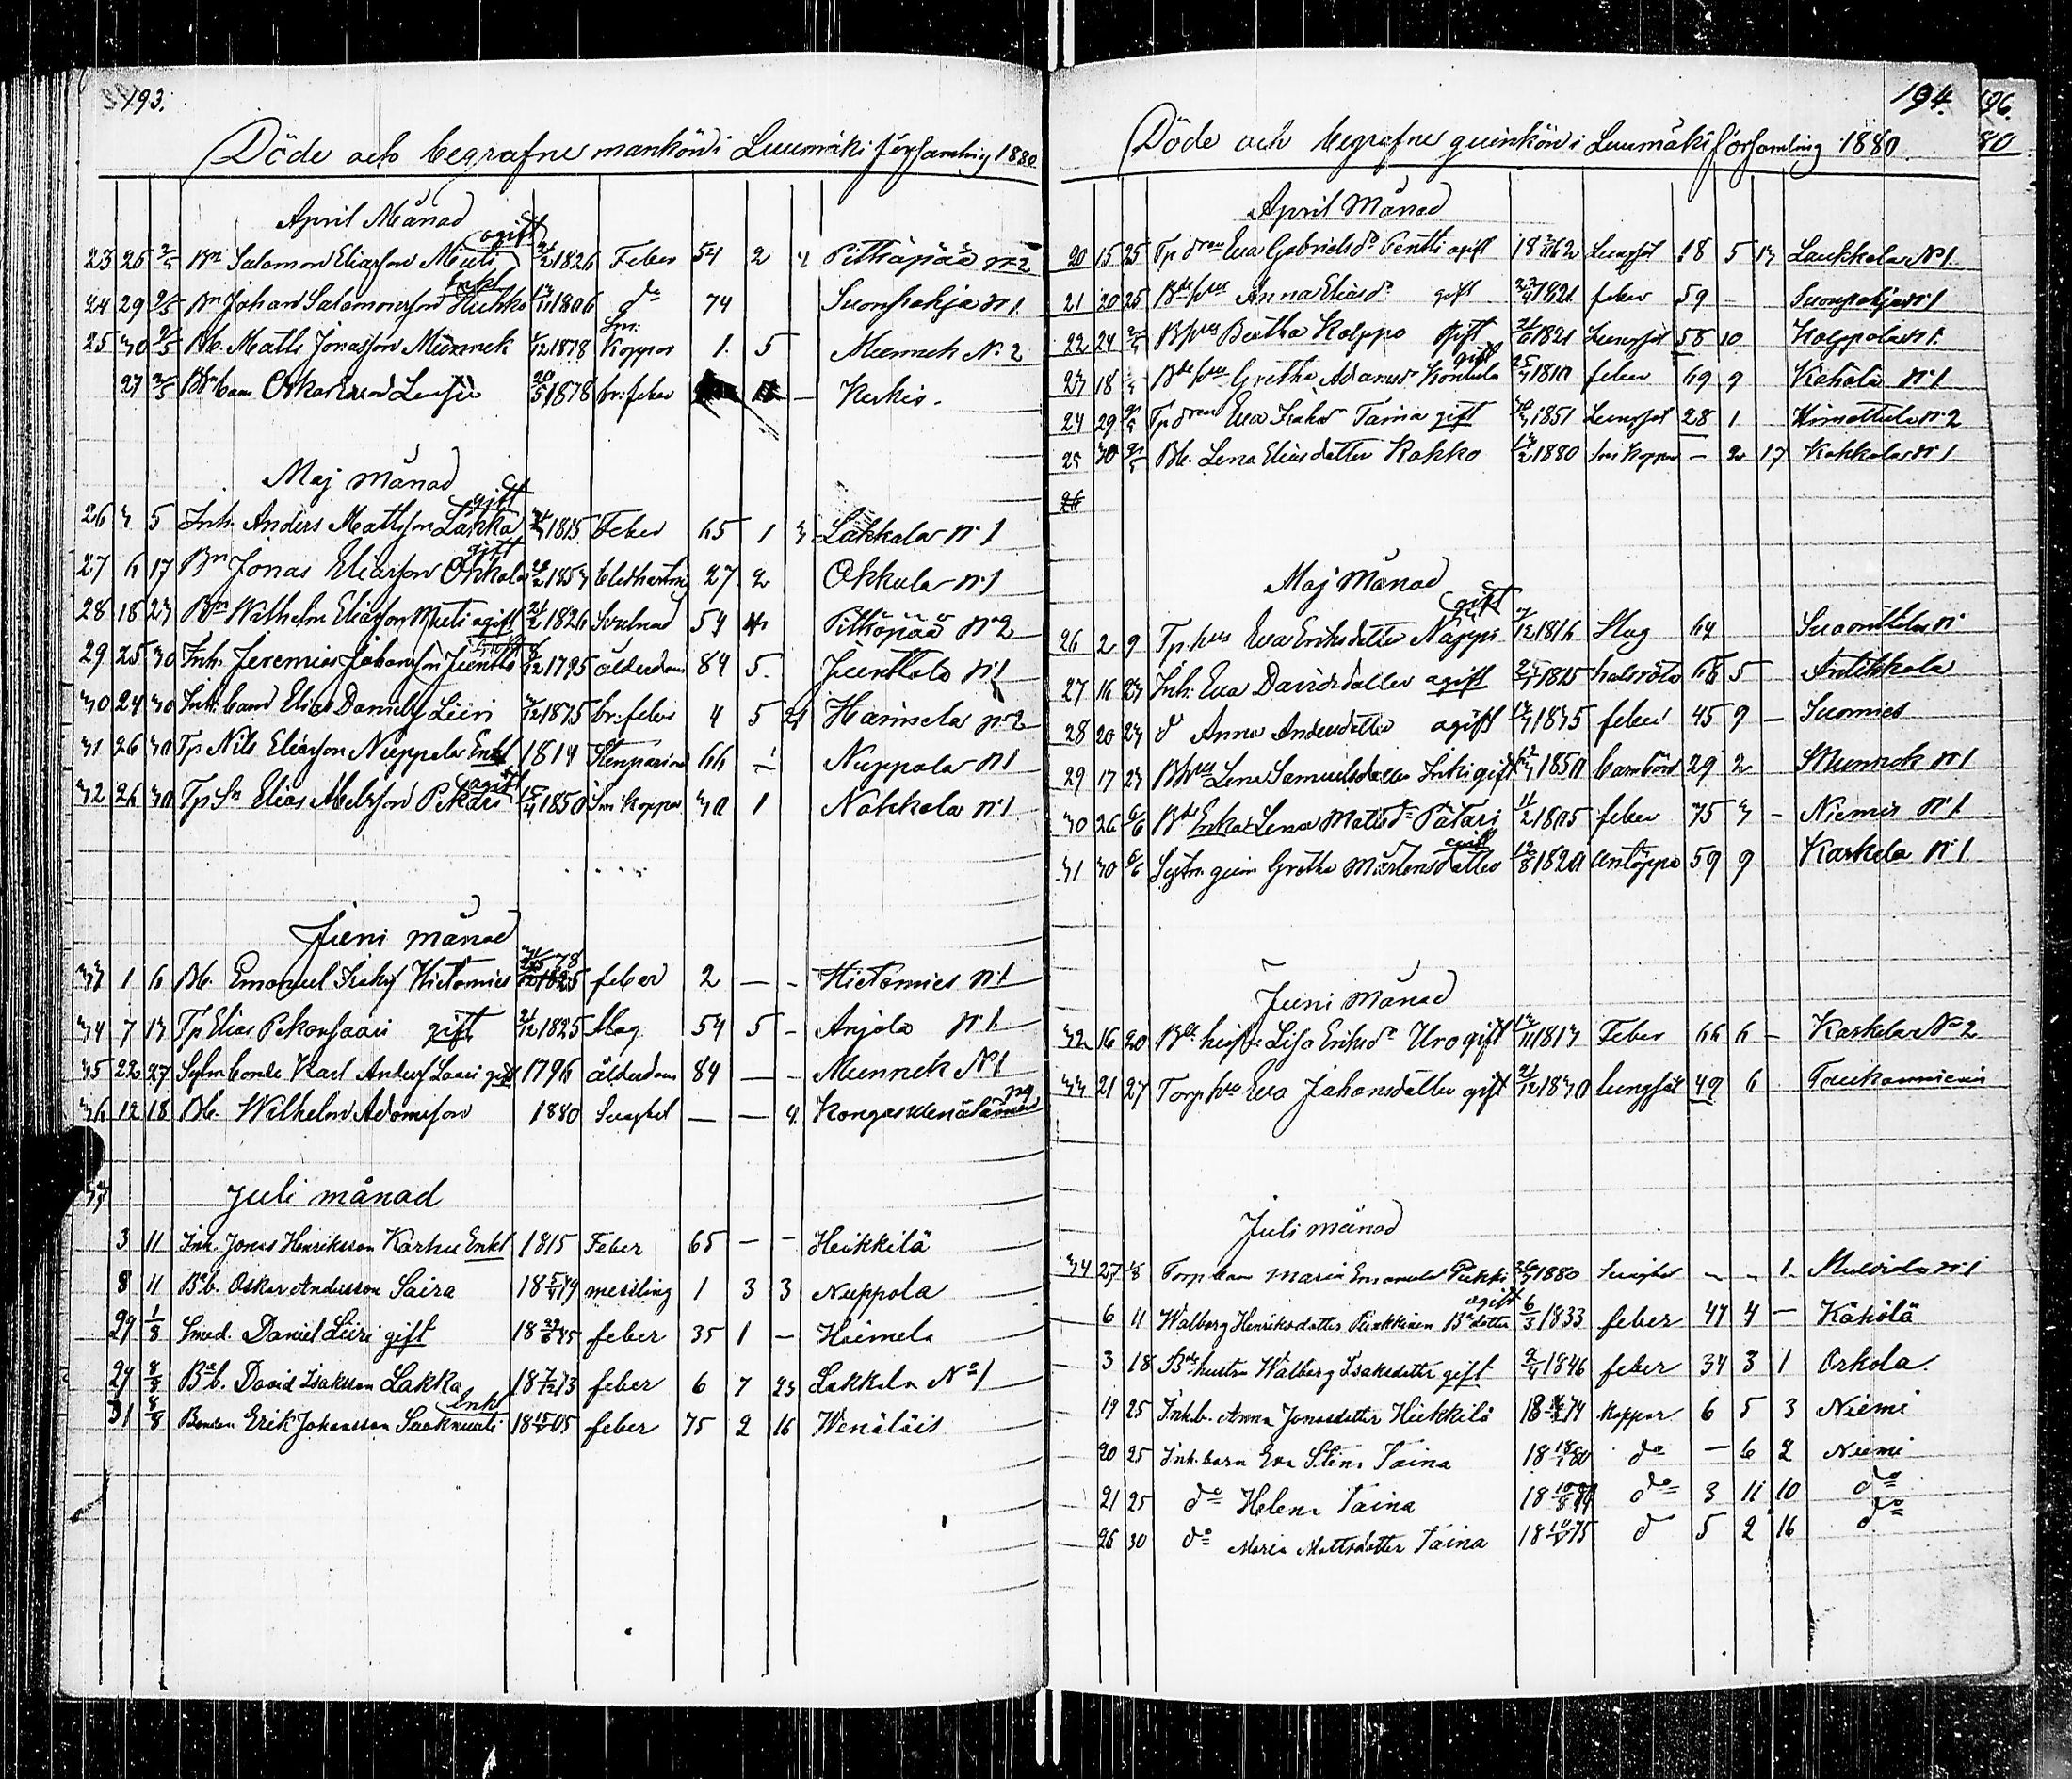 193.
Döde och begrafne mankön i Luumäki församling 1880
April Månad
23 25 2/5 Bn Salomon Eliasson Muti ogift 1826 Feber 54 2 Pitkäpää n:2
24 29 2/5 Bn Johan Salomonsson Hukko Enkl 1806 do 74 Suonpohja n:1
25 30 2/5 Bb. Matts Jonasson Munnek 1/12 1878 Sm: Koppor 1. 5 Munnek No 2
27 2/5 barn Oskar 20/5 1878 br: feber — Kerkis.
Maj månad
26 3 5 Inh. Anders Mattsson Lakka gift 1815 Feber 65 1 3 Lakkala n:1
27 6 17 Bn Jonas Eliasson Okkola gift 1853 27 2 Okkola n:1
28 18 23 Bn Wilhelm Eliasson Muti ogift 1826 Svulnad 54 Pitkäpää n:2
29 25 30 Inh. Jeremias Johansson Junttu 1795 ålderdom 84 5. Junttola n:1
30 24 30 Inh. barn Elias Daniels Liiri 1875 br: feber 4 5 Haimela n:2
31 26 30 Tp. Nils Eliasson Nuppola Enkl 1814 Stenpassion 66 Nuppola n:1
32 26 30 Tp. Sn Elias Abelsson Pekari ogift 1850 Sm: koppor 30 1 Nokkola n:1
Juni månad
33 1 6 Bb. Emanuel Isaks Hietamies 78 feber 2 — - Hietamies n:1
34 7 13 Tp Elias Pekonsaari gift 1825 slag 54 5 - Anjola n:1
35 22 27 Sytm. bonde Karl Anders Laari gift 1796 ålderdom 84 — - Munnek No 1
36 12 18 Bb. Wilhelm Adamsson 1880 — — 4. Kongas
Juli månad
3 11 Inh. Jonas Henriksson Karhu Enkl 1815 Feber 65 — — Heikkilä
8 11 Bb. Oskar Andersson Saira 18 5/4 79 messling 1 3 3 Nuppola
27 1/8 Smed. Daniel Liiri gift 18 45 feber 35 1 — Haimela
27 8/8 Bb. David Isaksson Lakka 18 7/12 73 feber 6 7 23 Lakkala No 1
31 8/8 Bonden Erik Johansson Enkl 18 15/5 05 feber 75 2 16 Wenäläis
194.
196.
80
Döde och begrafne quinkön i Luumäki församling 1880
April Månad
20 15 25 Tp dran Eva Gabrielsdr Pentti ogift 1862 Lungsot 18 5 13 Laukkala No 1.
21 20 25 Anna Eliasdr gift 1821 feber 59 — Suonpohja n:1
22 24 2/5 Beatha Kolppo gift 1821 Lungsot 58 10 Kolppola n:1.
23 18 Gretha Adamsdr Kontula gift 1810 feber 69 9 Kähölä n:1
24 29 Tp dran Eva Isaksdr Taina gift 1851 Lungsot 28 1 Himottula n:2
25 30 Bb. Lena Eliasdotter Kokko 1880 Sm: Koppor — 2 17 Kokkola n:1
26
Maj månad
26 2 9 Tp. hus Eva Eriksdotter Näppi gift 1816 Slag 64 Suonttila n:
27 16 23 Inh. Eva Davidsdotter ogift 1815 halsröta 65 5 — Anttikkala
28 20 23 d Anna Andersdotter ogift 1835 feber 45 9 — Suomies
29 17 23 Lena Samuelsdotter Inki gift 1850 barnbörd 29 2 Munnek n:1
30 26 6/6 Enka Lena Mattsdr Pätäri 11/2 1805 feber 75 3 — Niemis n:1
31 30 6/6 Sytn: quin Gretha Mårtensdotter gift 1820 59 9 Karkela n:1
Juni månad
32 16 20 Lisa Eriksdr Uro gift 1813 Feber 66 6 — Karkela No 2
33 21 27 Torp hu Eva Johansdotter gift 1830 lungsot 49 6
Juli månad
34 27 1/8 Torp barn Maria Emanuels Pukki 1880 — — 1. n:1
6 11 Walborg Henriksdotter Pukkinen Bdotter ogift 6/3 1833 feber 47 4 — Kähölä
3 18 Bdhustru Walborg Isaksdotter gift 2/4 1846 feber 34 3 1 Orkola.
19 25 Inhb. Anna Jonasdotter Hiekkilä 18 74 koppor 6 5 3 Niemi
20 25 Inh. barn Eva Stina Taina 18 18/1 80 do — 6 2 Niemi
21 25 do Helena Taina 18 10/8 do 3 11 10 do
26 30 do Maria Mattsdotter Taina 18 75 d 5 2 16 do